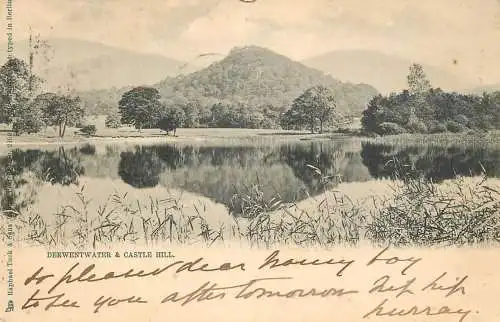 DERWENTWATER & CASTLE HILL.
So pleased dear Fanny boy
to see you after tomorrow hip hip
hurray.
Raphael Tuck & Sons'
typed in Berlin